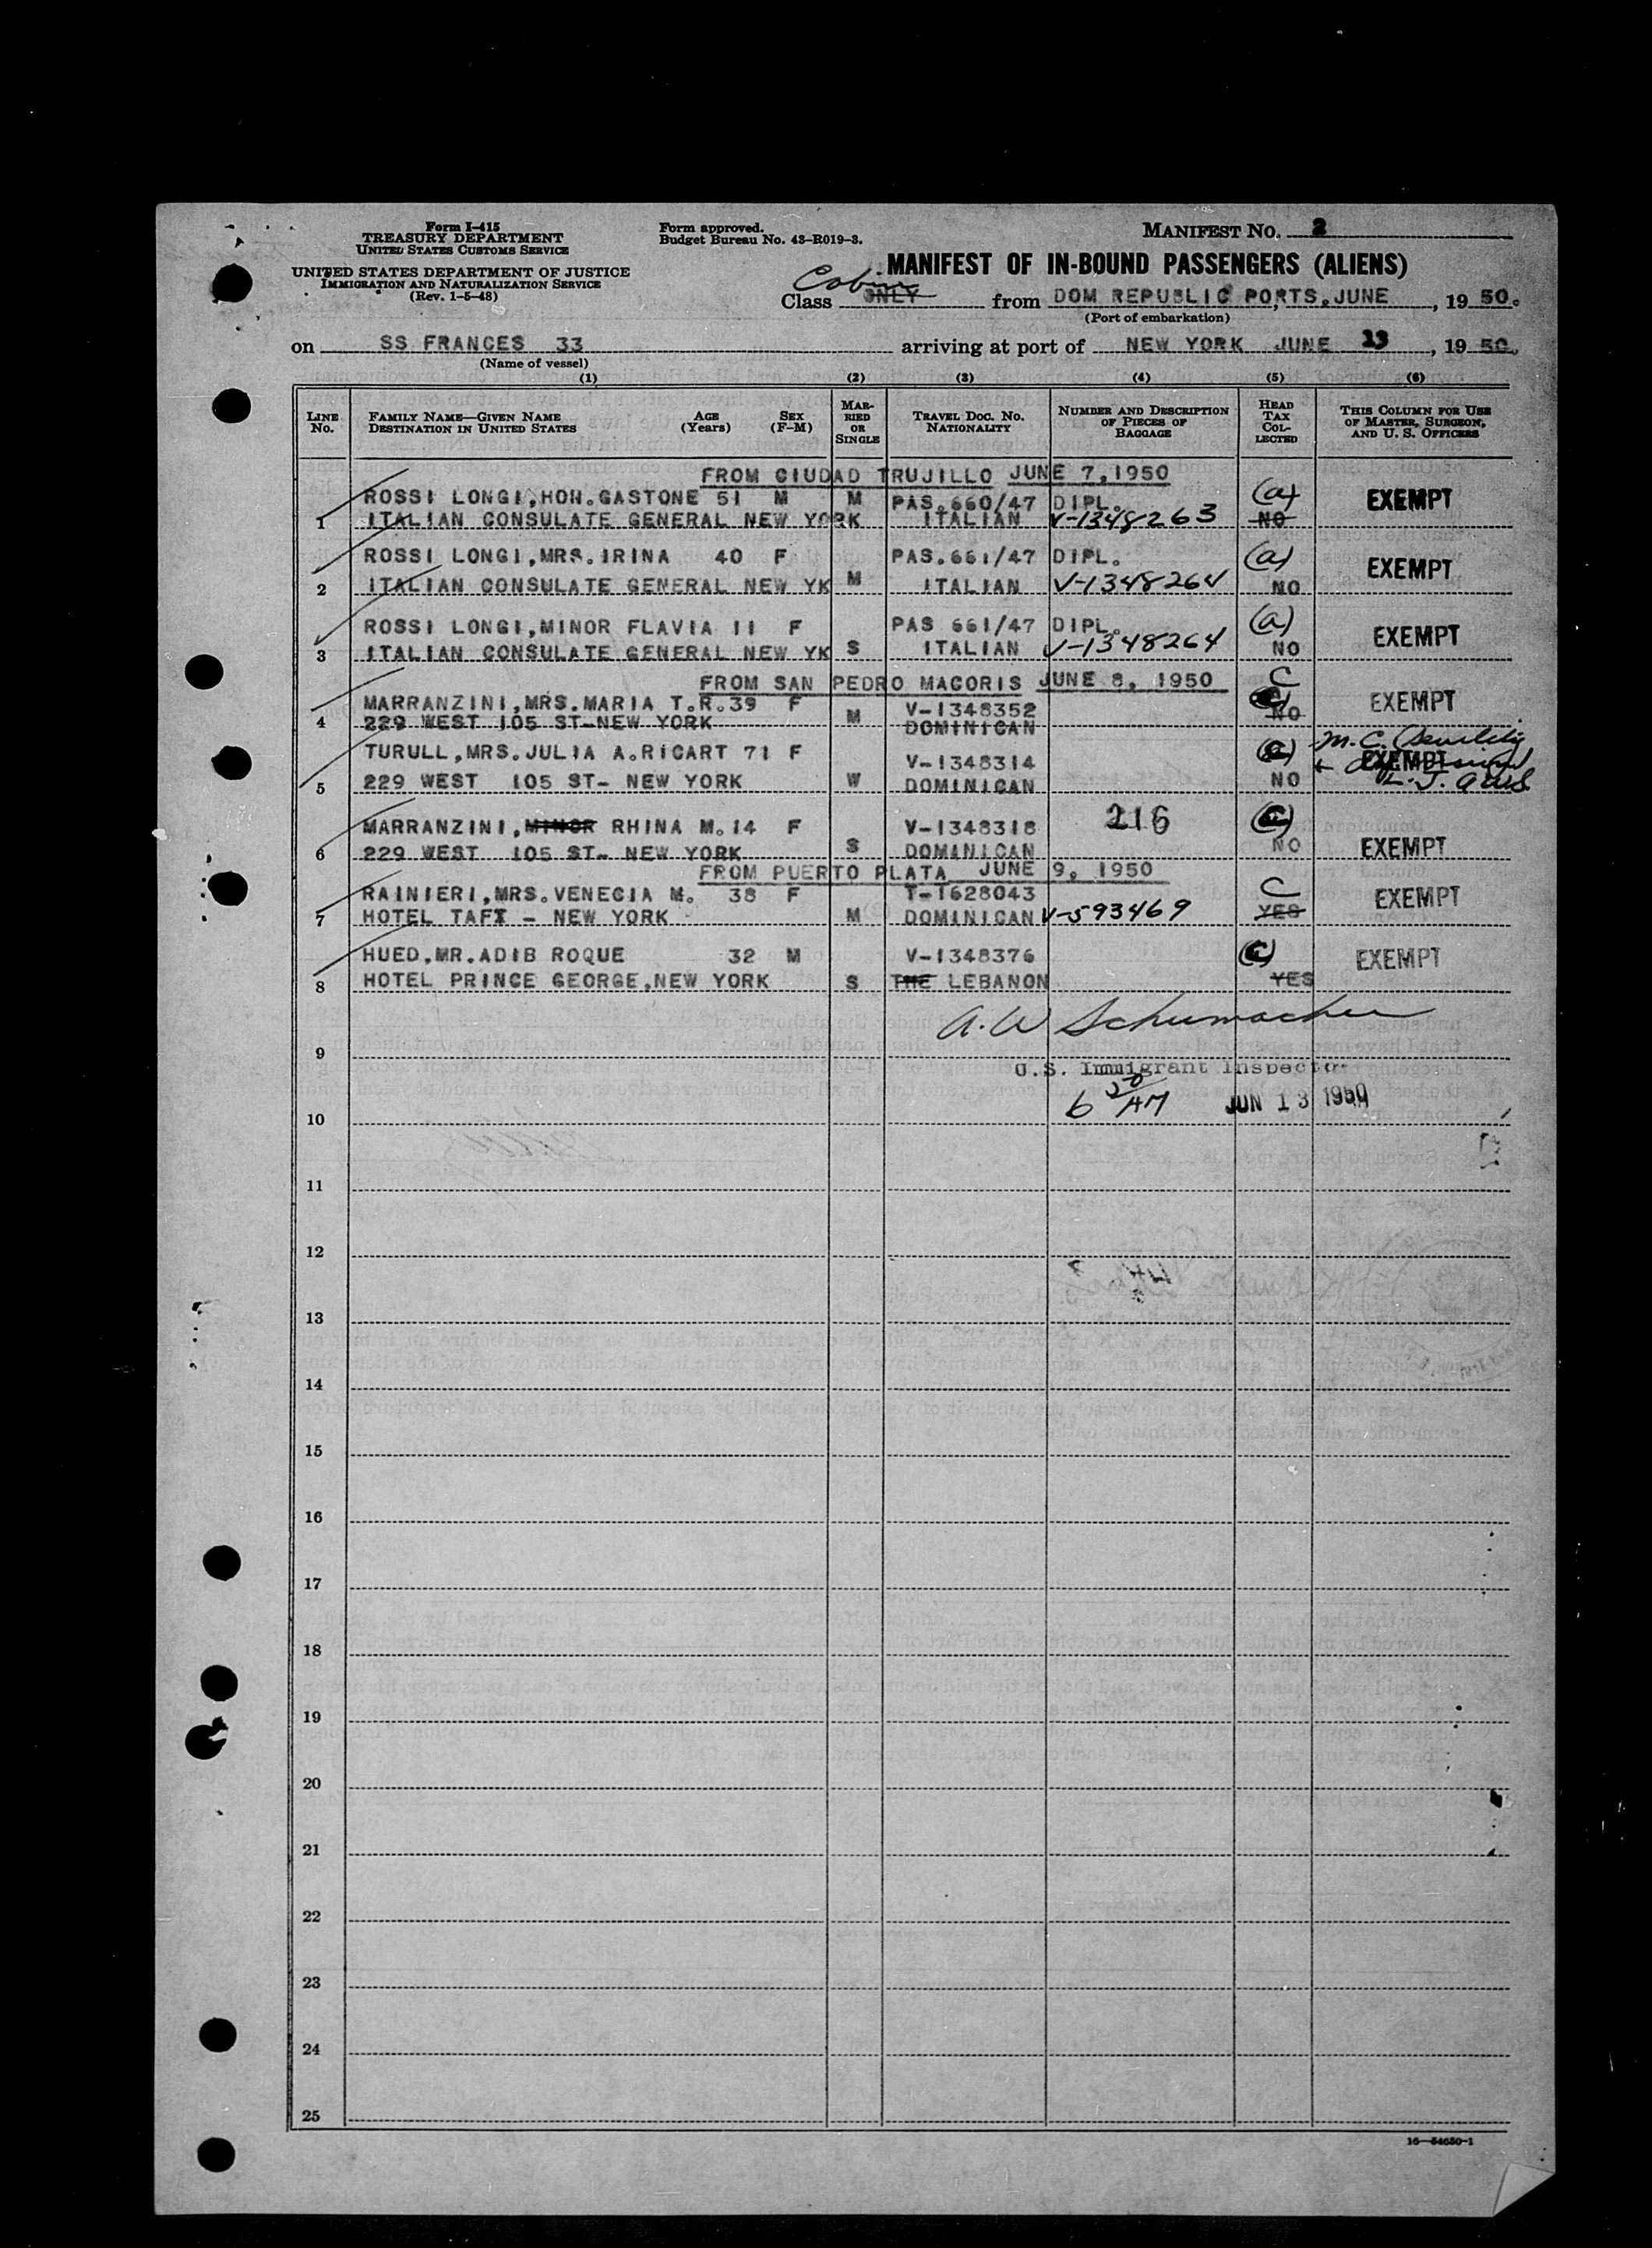 Form I-415
TREASURY DEPARTMENT
UNITED STATES CUSTOMS SERVICE
UNITED STATES DEPARTMENT OF JUSTICE
IMMIGRATION AND NATURALIZATION SERVICE
(Rev. 1-5-48)
Form approved.
Budget Bureau No. 43-R019-3.
MANIFEST NO. 2
MANIFEST OF IN-BOUND PASSENGERS (ALIENS)
Cabin
Class ONLY from DOM REPUBLIC PORTS, JUNE, 19 50.
(Port of embarkation)
on SS FRANCES 33 arriving at port of NEW YORK JUNE 13, 19 50.
(Name of vessel)
(1) (2) (3) (4) (5) (6)
LINE NO. FAMILY NAME—GIVEN NAME DESTINATION IN UNITED STATES AGE (Years) SEX (F-M) MARRIED OR SINGLE TRAVEL DOC. NO. NATIONALITY NUMBER AND DESCRIPTION OF PIECES OF BAGGAGE HEAD TAX COLLECTED THIS COLUMN FOR USE OF MASTER, SURGEON, AND U. S. OFFICERS
FROM CIUDAD TRUJILLO JUNE 7, 1950
ROSSI LONGI, HON. GASTONE 51 M M PAS. 660/47 DIPL. (a) EXEMPT
1 ITALIAN CONSULATE GENERAL NEW YORK ITALIAN V-1348263 NO
ROSSI LONGI, MRS. IRINA 40 F PAS. 661/47 DIPL. (a) EXEMPT
2 ITALIAN CONSULATE GENERAL NEW YK M ITALIAN V-1348264 NO
ROSSI LONGI, MINOR FLAVIA 11 F PAS 661/47 DIPL. (a) EXEMPT
3 ITALIAN CONSULATE GENERAL NEW YK S ITALIAN V-1348264 NO
FROM SAN PEDRO MACORIS JUNE 8, 1950 C
MARRANZINI, MRS. MARIA T.R. 39 F V-1348352 EXEMPT
4 229 WEST 105 ST-NEW YORK M DOMINICAN NO
TURULL, MRS. JULIA A. RICART 71 F V-1348314 EXEMPT
5 229 WEST 105 ST- NEW YORK W DOMINICAN NO
MARRANZINI, MINOR RHINA M. 14 F V-1348318 216 (C)
6 229 WEST 105 ST- NEW YORK S DOMINICAN NO EXEMPT
FROM PUERTO PLATA JUNE 9, 1950
RAINIERI, MRS. VENECIA M. 38 F T-1628043 C EXEMPT
7 HOTEL TAFT - NEW YORK M DOMINICAN V-593469 YES
HUED, MR. ADIB ROQUE 32 M V-1348376 (C) EXEMPT
8 HOTEL PRINCE GEORGE, NEW YORK S THE LEBANON YES
A. W. Schumacher
9
U.S. Immigrant Inspector
6 20 AM JUN 13 1950
10
11
12
13
14
15
16
17
18
19
20
21
22
23
24
25
16-54650-1